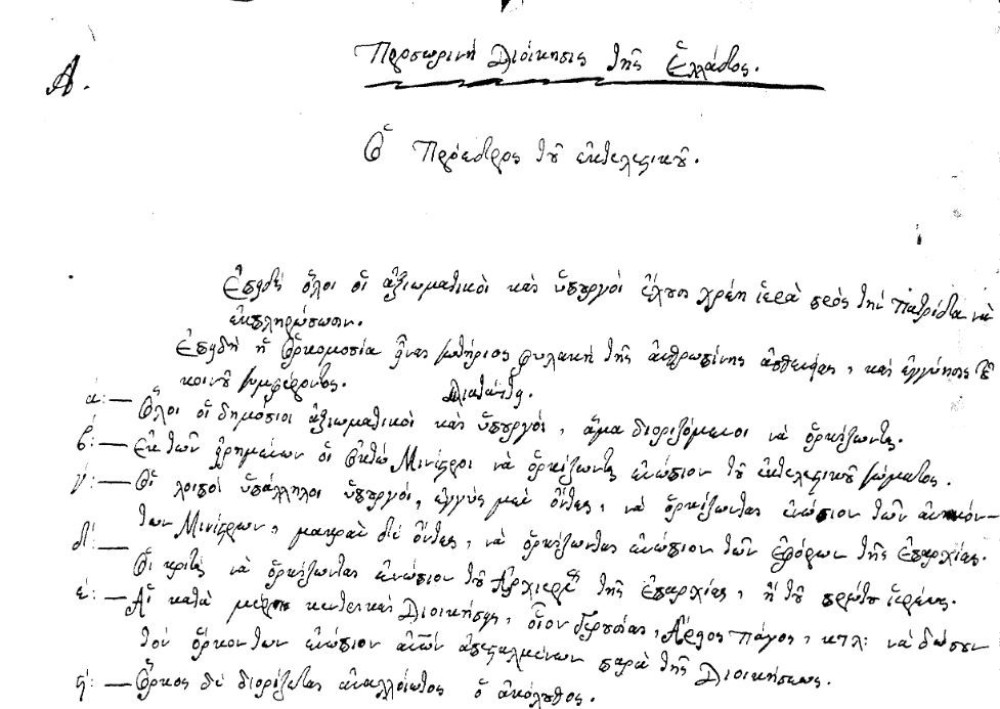 Α.
Προσωρινὴ Διοίκησις τῆς Ἑλλάδος.
Ὁ Πρόεδρος τοῦ ἐκτελεστικοῦ.
Ἐπειδὴ ὅλοι οἱ ἀξιωματικοὶ καὶ ὑπουργοὶ ἔχουν χρέη ἱερὰ πρὸς τὴν πατρίδα νὰ
ἐκπληρώσωσιν.
Ἐπειδὴ ἡ ὁρκομοσία εἶναι σωτήριος φυλακὴ τῆς ἀνθρωπίνης ἀσθενείας, καὶ ἐγγύησις τοῦ
κοινοῦ συμφέροντος.
Διατάττει.
α΄: — Ὅλοι οἱ δημόσιοι ἀξιωματικοὶ καὶ ὑπουργοί, ἅμα διοριζόμενοι νὰ ὁρκίζωνται.
β΄: — Ἐκ τῶν εἰρημένων οἱ ὀκτὼ Μινίστροι νὰ ὁρκίζωνται ἐνώπιον τοῦ ἐκτελεστικοῦ σώματος.
γ΄: — Οἱ λοιποὶ ὑπάλληλοι ὑπουργοί, ἐγγὺς μὲν ὄντες, νὰ ὁρκίζωνται ἐνώπιον τῶν
των Μινίστρων, μακρὰν δὲ ὄντες, νὰ ὁρκίζωνται ἐνώπιον τῶν ἐφόρων τῆς ἐπαρχίας.
δ΄: — Οἱ κριταὶ νὰ ὁρκίζωνται ἐνώπιον τοῦ Ἀρχιερέως τῆς ἐπαρχίας, ἢ τοῦ πρώτου ἱερέως.
ε΄: — Αἱ κατὰ μέρος Διοικήσεις, οἷον Γερουσίαι, Ἄρειος πάγος, κτλ: νὰ δώσουν
τὸν ὅρκον των ἐνώπιον ἀπεσταλμένων παρὰ τῆς Διοικήσεως.
ς΄: — Ὅρκος δὲ διορίζεται ἀναλλοίωτος ὁ ἀκόλουθος.